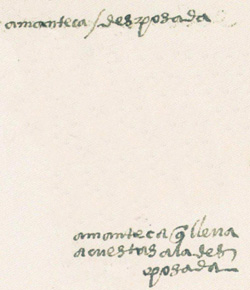 amanteca / desposada
amanteca q̃ lleua
acuestas ala des
posada